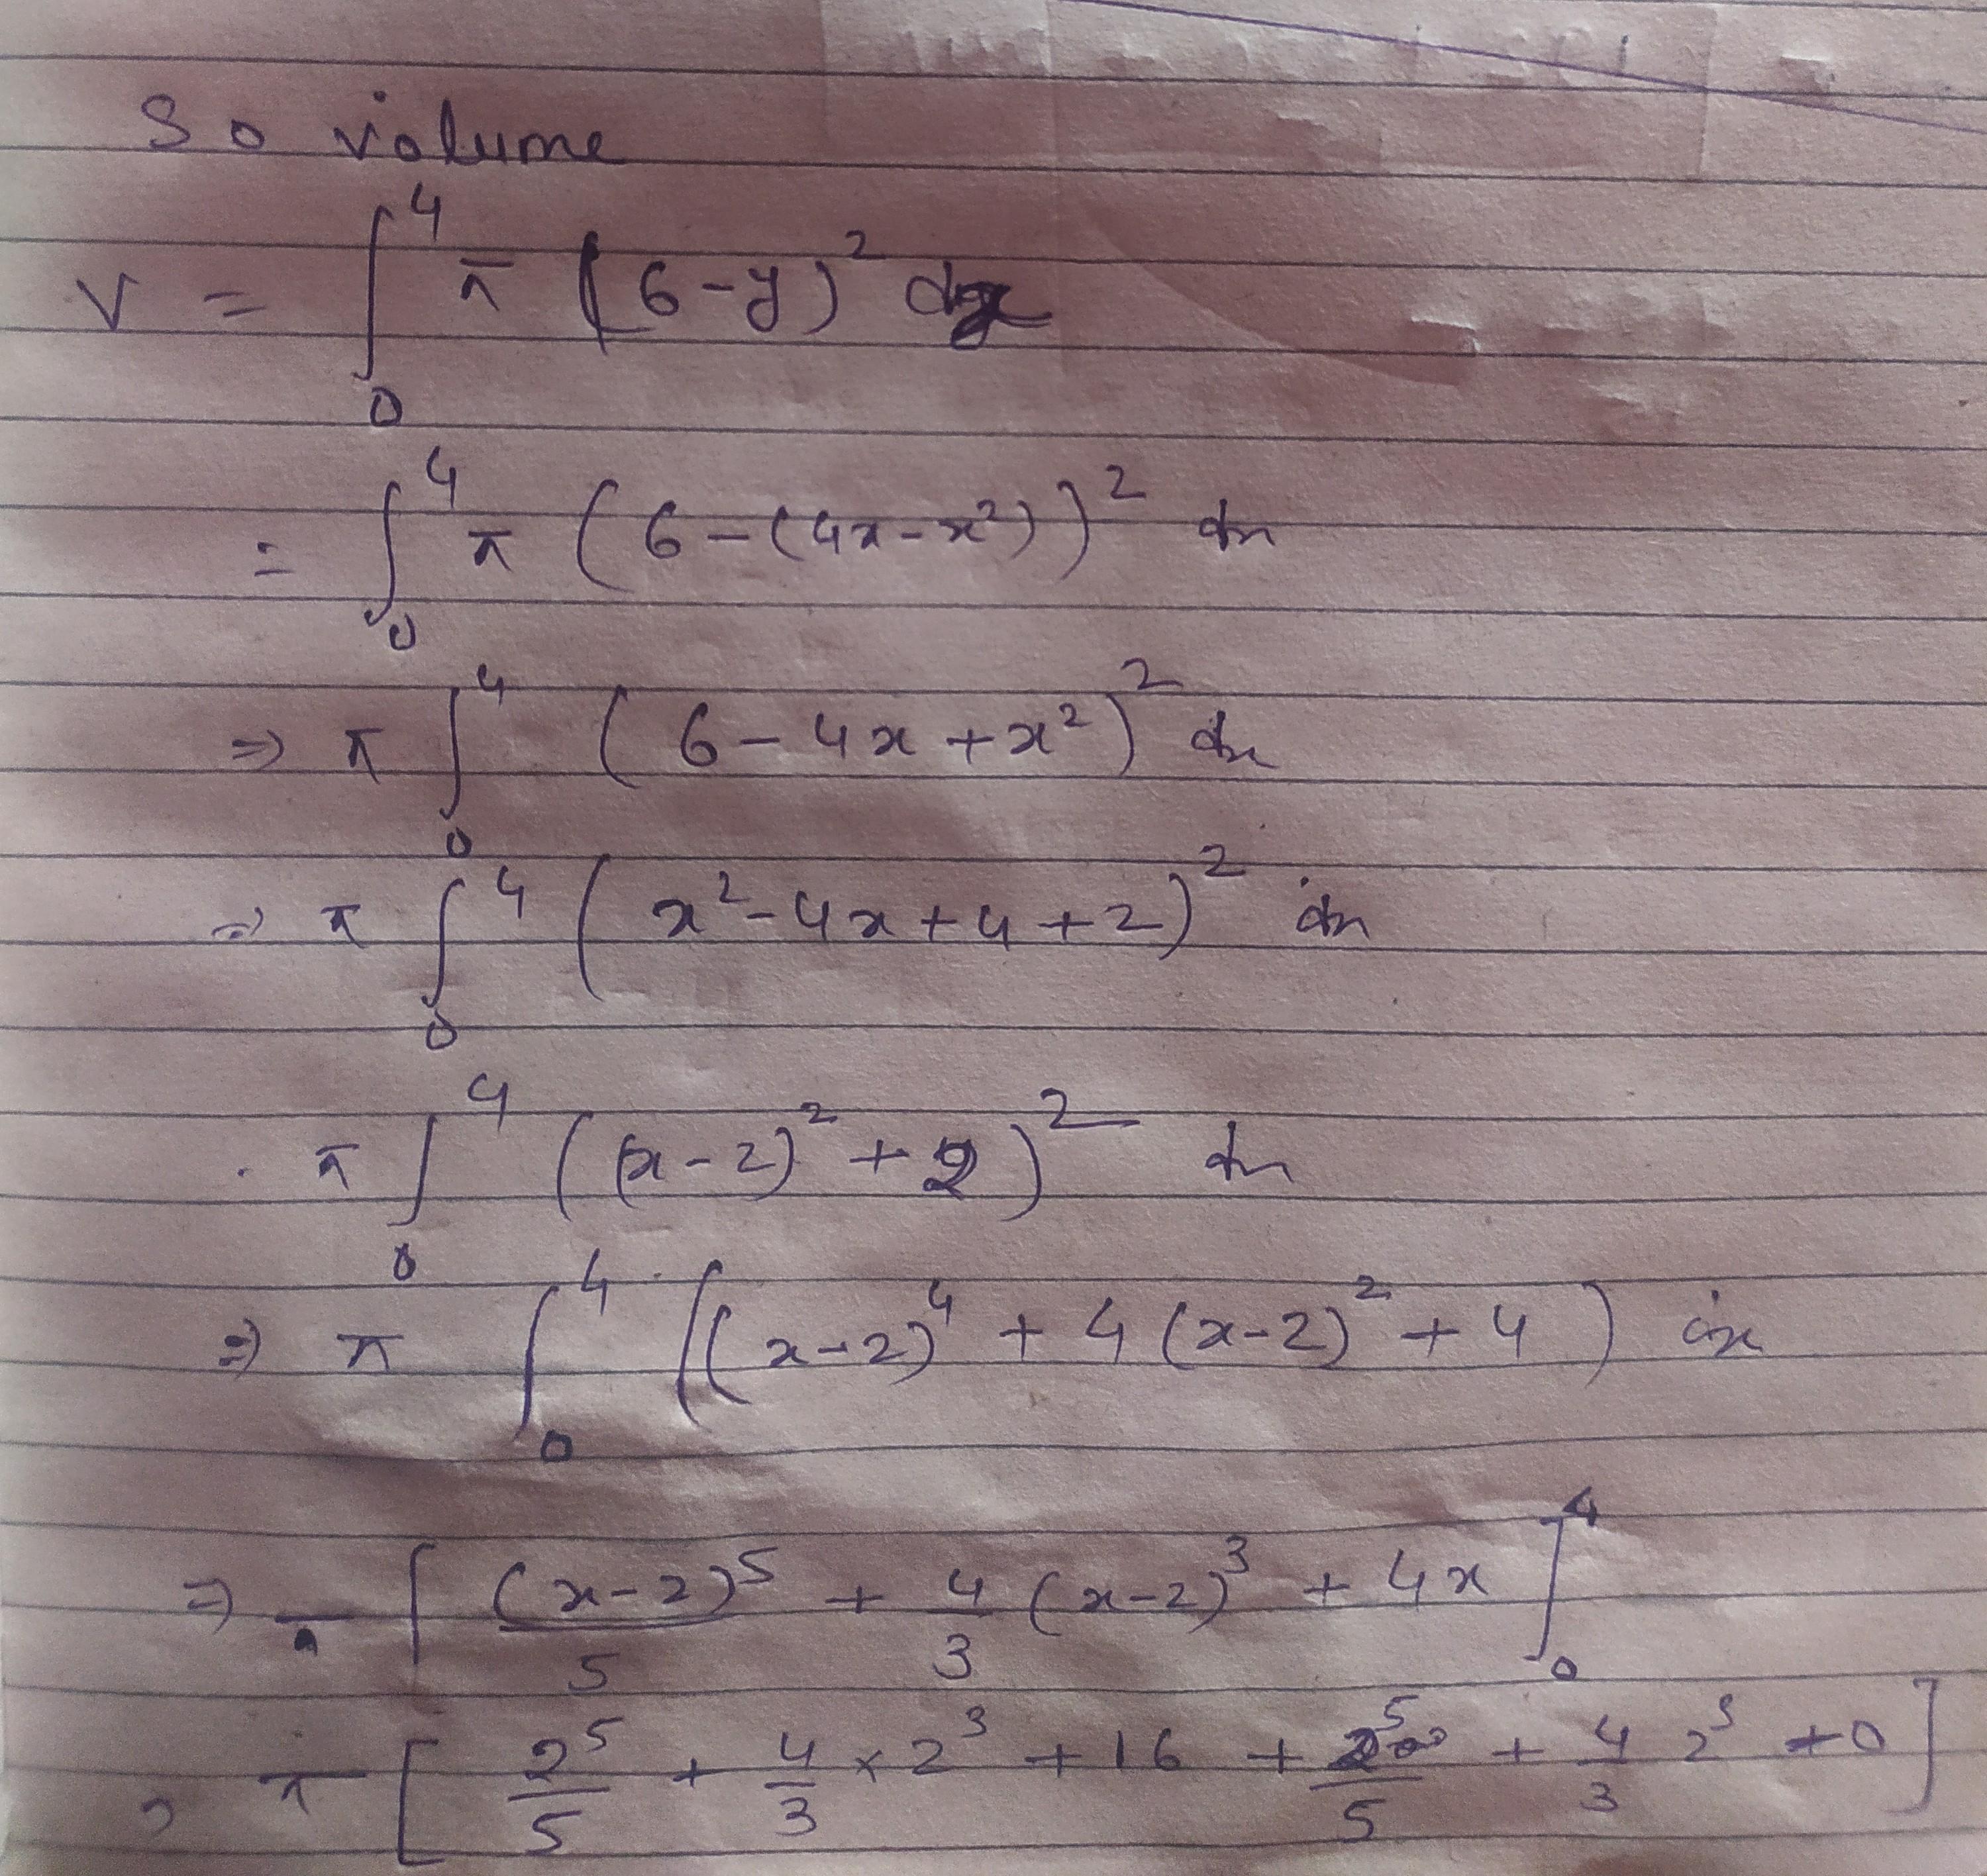 So volume
V = ∫₀⁴ π (6-y)² dx
= ∫₀⁴ π (6-(4x-x²))² dx
⇒ π ∫₀⁴ (6-4x+x²)² dx
⇒ π ∫₀⁴ (x²-4x+4+2)² dx
π ∫₀⁴ ((x-2)²+2)² dx
⇒ π ∫₀⁴ ((x-2)⁴ + 4(x-2)² + 4) dx
⇒ π [ (x-2)⁵/5 + 4/3 (x-2)³ + 4x ]₀⁴
π [ 2⁵/5 + 4/3 × 2³ + 16 + 2⁵/5 + 4/3 2³ + 0 ]